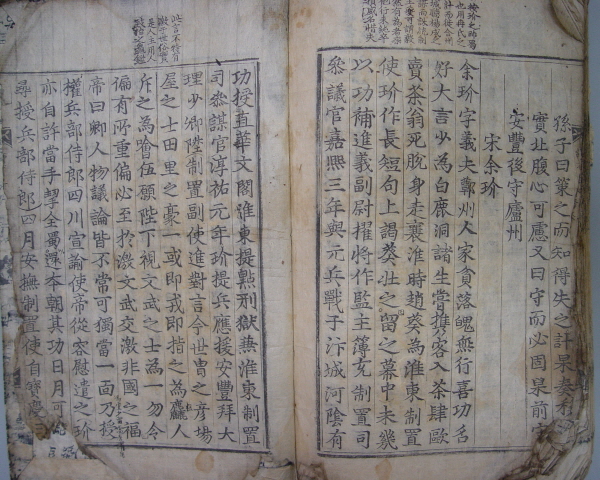 孫子曰策之而知得失之計杲奏
實止腹心可慮又曰守而必固杲前守
安豐後守廬州
宋余玠
余玠字義夫蘄州人家貧落魄無行喜功名
好大言少為白鹿洞諸生嘗携客入茶肆歐
賣茶翁死脫身走襄淮時趙葵為淮東制置
使玠作長短句上謁葵壯之留之幕中未幾
以功補進義副尉擢將作監主簿充制置司
叅議官嘉熙三年與元兵戰于汴城河陰有
功授直華文閣淮東提點刑獄兼淮東制置
司叅謀官淳祐元年玠提兵應援安豐拜大
理少卿陞制置副使進對言今世胄之彥場
屋之士田里之豪一或即戎即指之為麤人
斥之為噲伍願陛下視文武之士為一勿令
偏有所重偏必至於激文武交激非國之福
帝曰卿人物議論皆不常可獨當一面乃授
權兵部侍郎四川宣諭使帝從容慰遣之玠
亦自許當手挈全蜀還本朝其功日月可
尋授兵部侍郎四月安撫制置使自寶慶